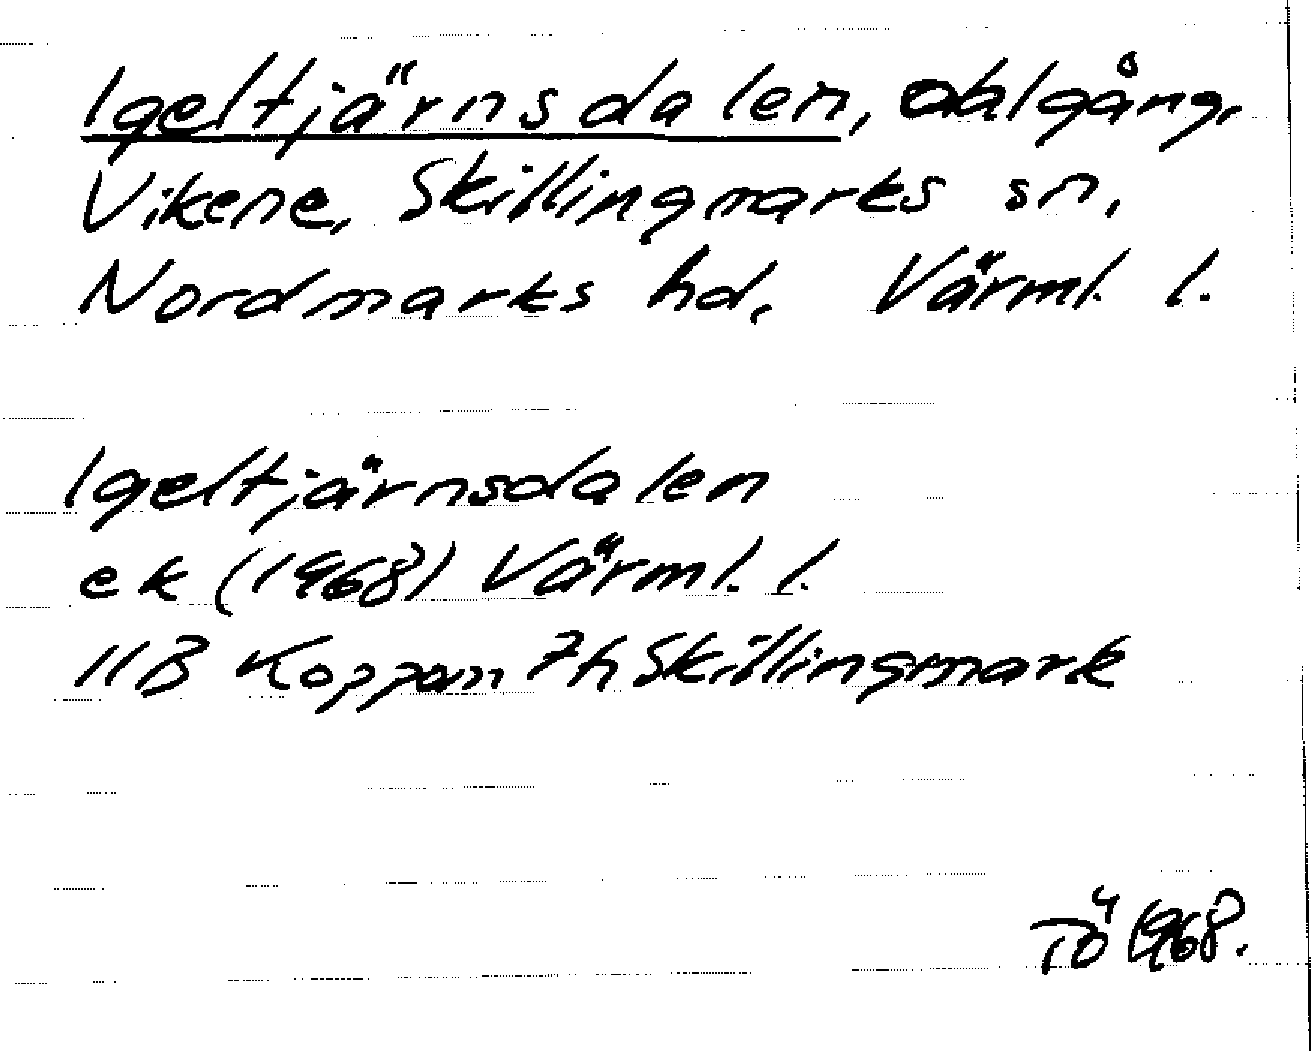 Igeltjärnsdalen, dalgång,
Vikene, Skillingmarks sn,
Nordmarks hd, Värml. l.
Igeltjärnsdalen
ek (1968) Värml. l.
11B Koppom 7h Skillingmark
TÖ 1968.